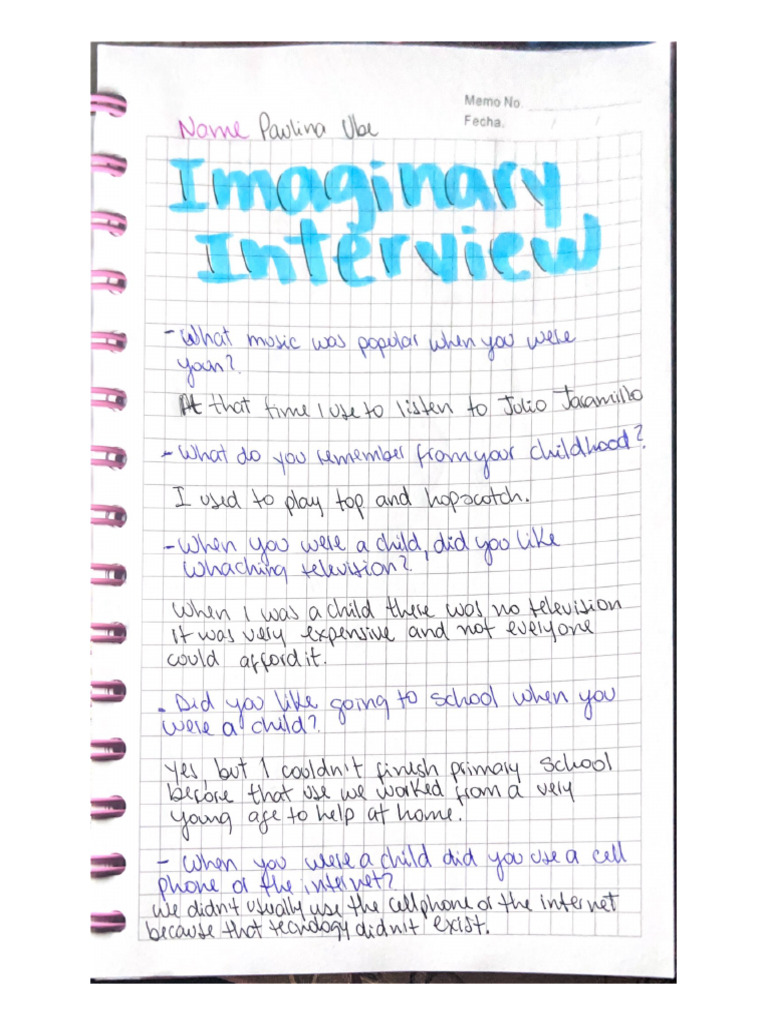 Memo No.
Fecha. / /
Name Paulina Ube
Imaginary
Interview
- What music was popular when you were
youn?
At that time I use to listen to Julio Jaramillo
- What do you remember from your childhood?
I used to play top and hopscotch.
- When you were a child, did you like
whaching television?
When I was a child there was no television
it was very expensive and not everyone
could afford it.
. Did you like going to school when you
were a child?
Yes, but I couldn't finish primary school
before that use we worked from a very
young age to help at home.
- When you were a child did you use a cell
phone or the internet?
We didn't usually use the cellphone or the internet
because that tecnology didn't exist.